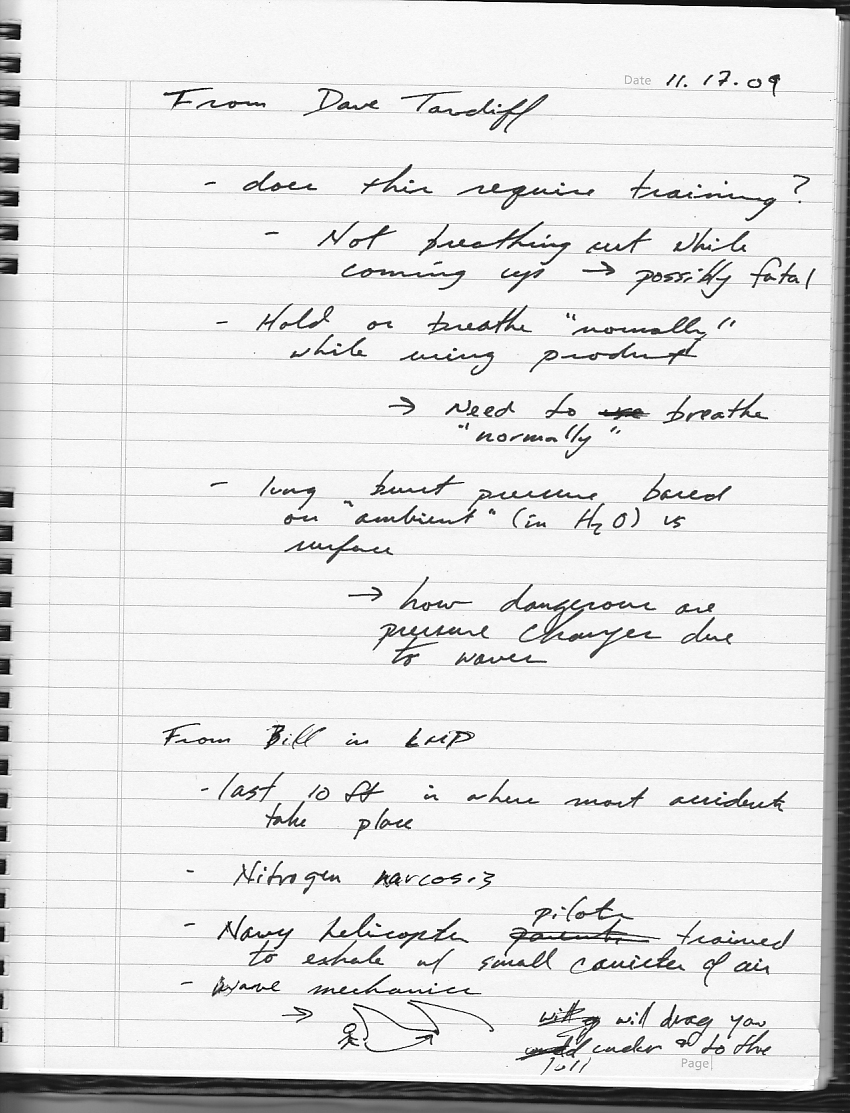 Date 11.17.09
From Dave Tardiff
- does this require training?
- Not breathing out while
coming up → possibly fatal
- Hold or breathe "normally"
while using product
→ Need to use breathe
"normally"
- lung burst pressure based
on "ambient" (in H2O) vs
surface
→ how dangerous are
pressure changes due
to waves
From Bill in LMP
- last 10 ft is where most accidents
take place
- Nitrogen narcosis
pilots
- Navy helicopter trained
to exhale w/ small canister of air
- wave mechanics
→ will drag you
under & to the
Page